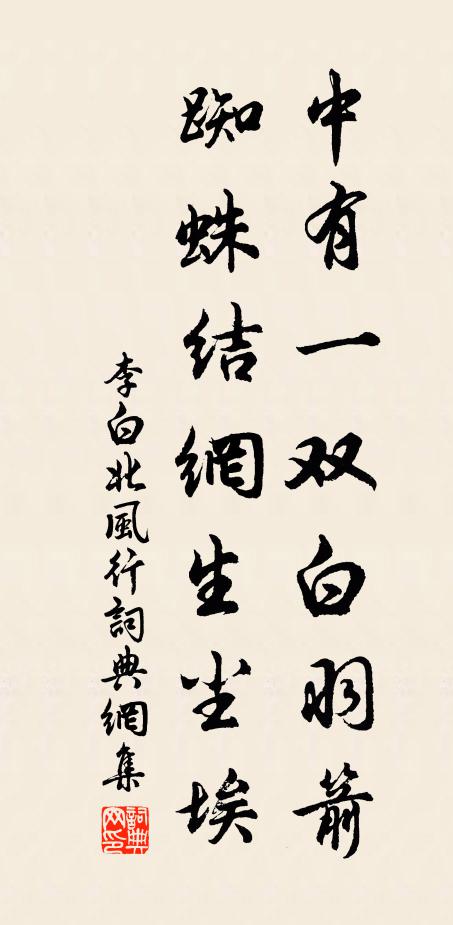 中有一双白羽箭
蜘蛛结網生尘埃
李白北風行詞典網集
詞典網印